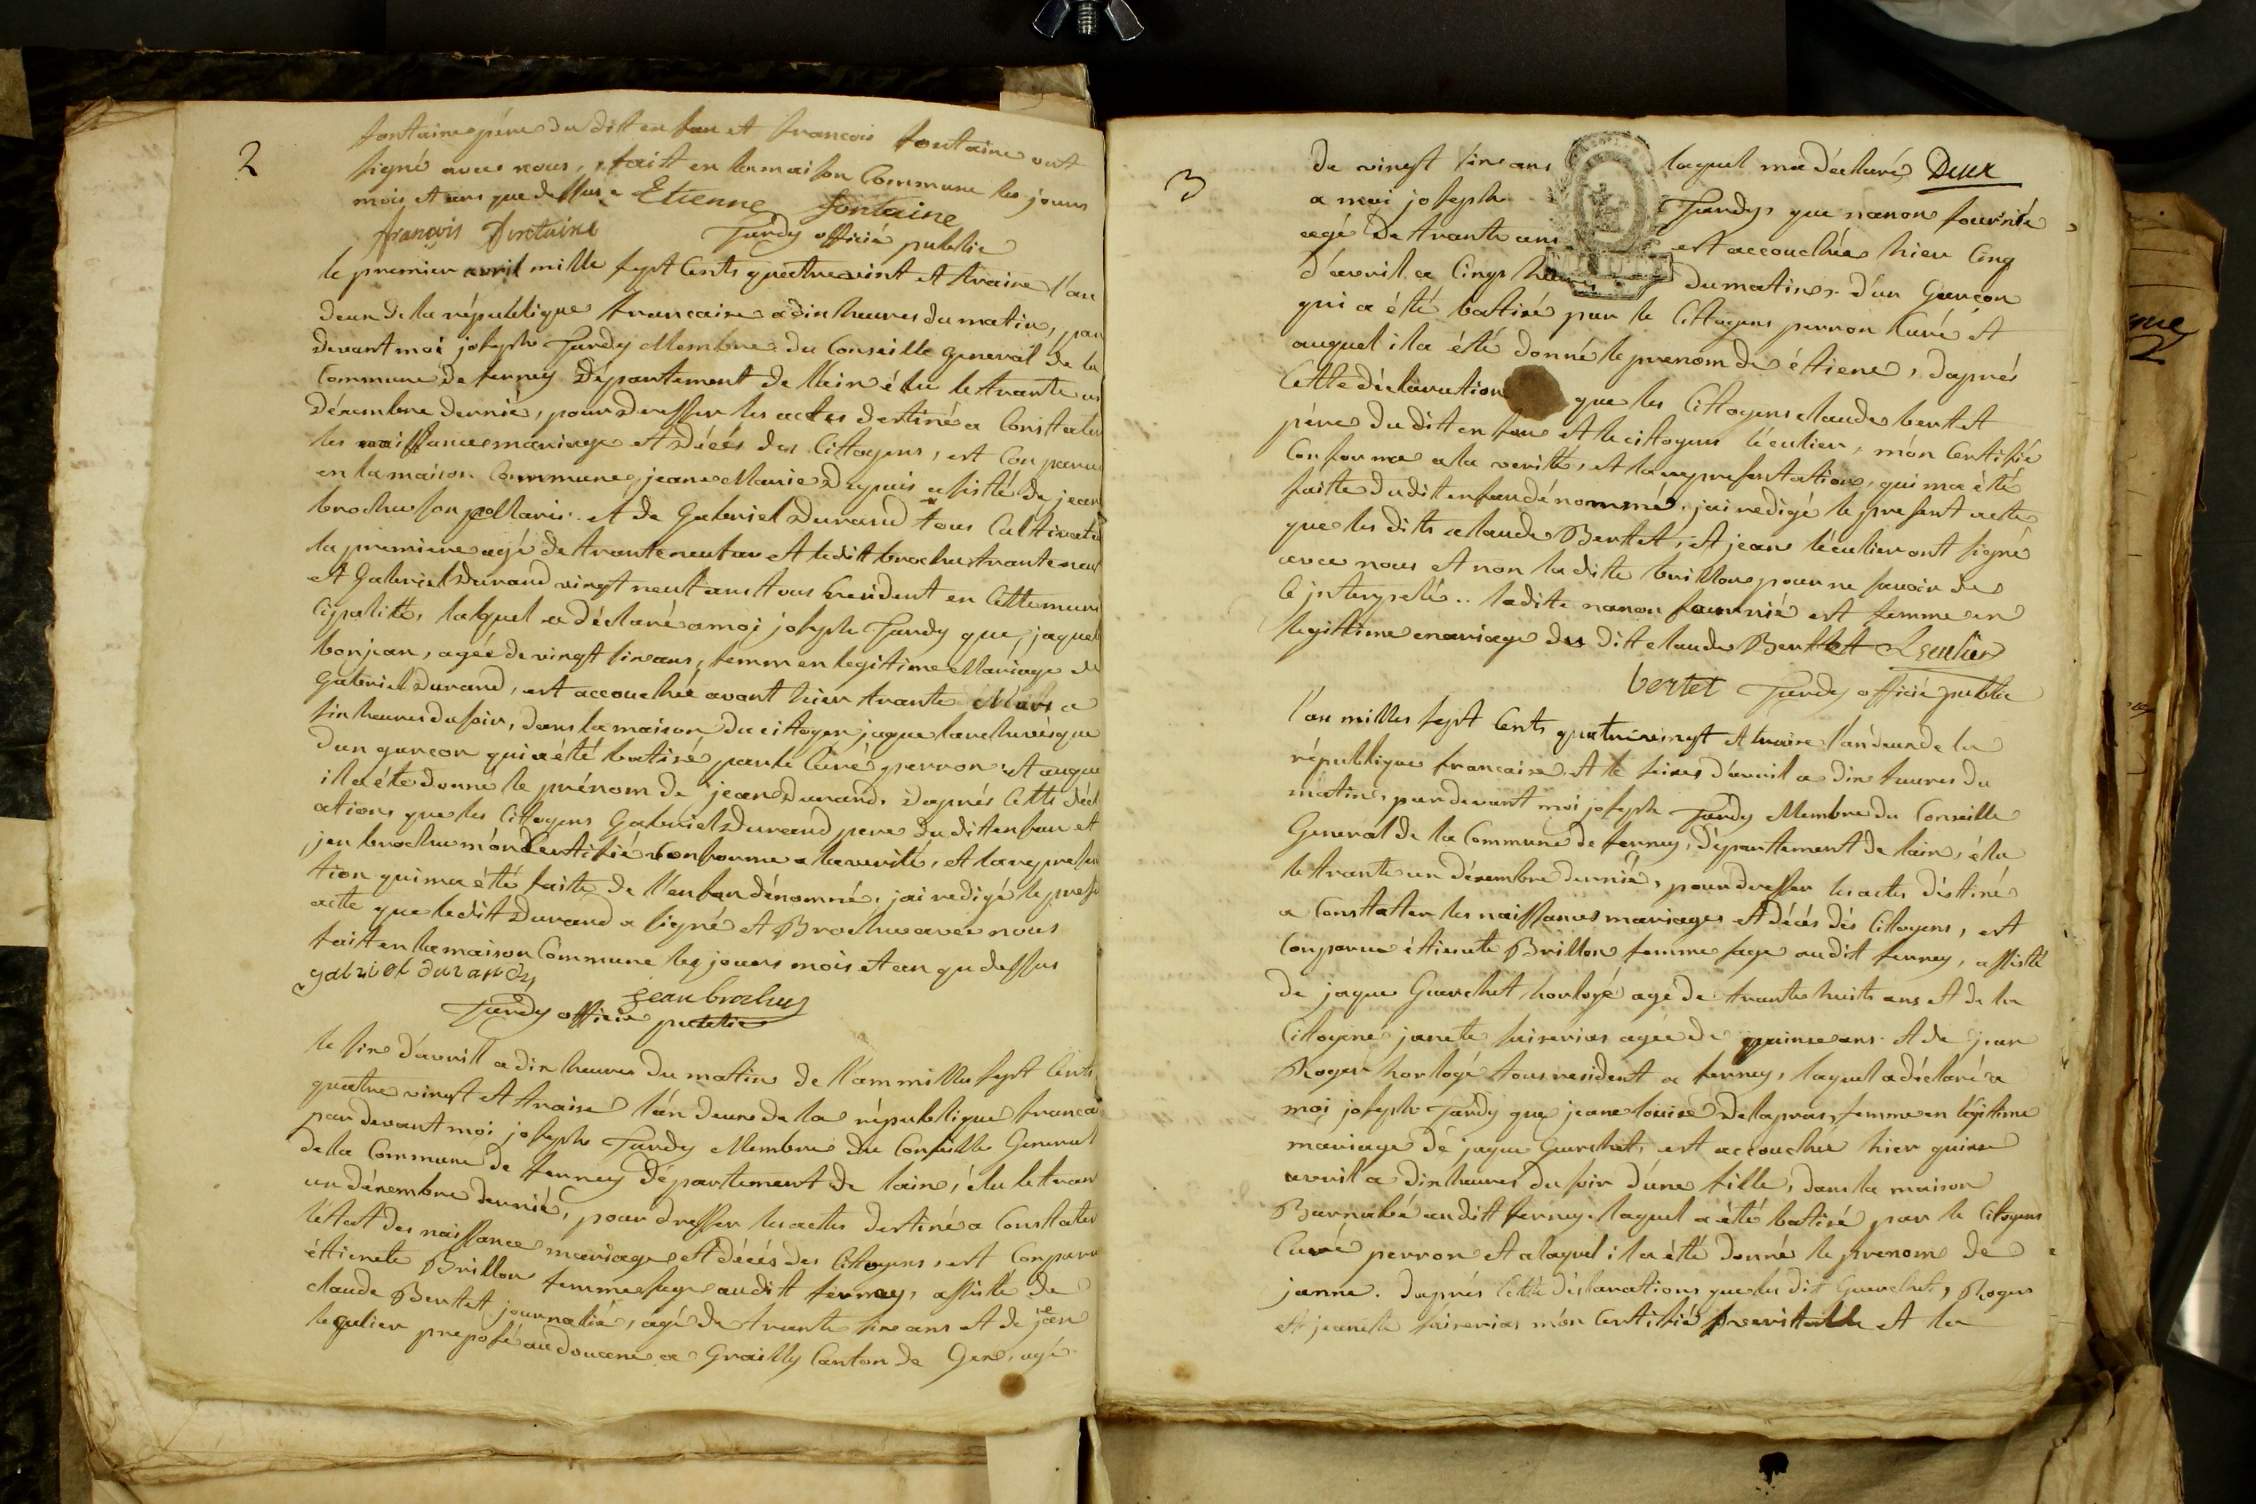 2
fontaine pére du dit enfan et francois fontaine ont
signé avec nous, fait en la maison Commune les jours
mois et ans que dessus Etienne fontaine
françois Fontaine Tardy officié public
le premier avril mille sept Cents quatrevint et traize l'an
deux de la république francaise a dix heures du matin, par
devant moi joseph Tardy Membre du Conseille general de la
Commune de ferney Département de l'lain élu le trante un
décembre dernié, pour dresser les actes destiné a Constater
les naissance mariage et décés des Cittoyens, est Conparue
en la maison Commune, jeane Marie Depuis asisté de jean
brochu son Marie et de Gabriel Durand tous Cultivate
la premiere agé de trante neuf an et ledit brochu trante neuf
et Gabriel Durand vingt neuf ans tous resident en Cette muni
cipalitté, laquel a déclaré a moi joseph Tardy que, jaquel
bonjean, agée de vingt six ans, femm en legitime Mariage de
Gabriel Durand, est accouchée avant hier trante Mars a
six heures du soir, dans la maison du cittoyen jaque larchevèque
dun garcon qui a été batisé par le Curé perron et auque
il a éte donné le prénom de jean Durand, daprés Cette décl
ations que les Cittoyens Gabriel Durand pere du dit enfan et
jean brochu m'ónt Certifié Conforme a la verité, et la represen
tion qui ma été faite de l'enfan dénomné, jai redigé le prese
acte que ledit Durand a signé et Brochu avec nous
fait en la maison Commune les jours mois et an qu dessus
gabriel durand
jean brochu
Tardy officié public
le six d'avrill a dix heures du matin de l'am mille sept Cents
quatre vingt et traise l'án deux de la république franca
par devant moi joseph Tardy Membre du Conseille General
de la Commune de ferney Département de lain, élu le tran
un décembre dernié, pour dresser les actes destiné a Constater
l'état des naissance mariage et décés des Cittoyens, est Conparu
étienete Brillon femme sage au dit ferney, assisté de
claude Bertet journalié, agé de trante six ans et de jean
lequlier preposé au douane a Grailly Canton de Gex, agé
3
de vingt six ans laquel ma déclaré Deux
a moi joseph Tardy, que nanon fournié
agé de trante ans est accouchée hier Cinq
d'avril a Cinqs heures du matin d'un Garcon
qui a été batisé par le Cittoyens perron Curé et
auquel il a été donné le prenom de étiene, daprés
Cette déclaration que les Cittoyens claude bertet
pére du dit enfan et le citoyens léculier, món Certifié
Conforme a la verité, et la representation, qui ma été
faite du dit enfan dénommé, jai redigé le present acte
que les dits claude Bertet, et jean léculier ont signé
avec nous et non la dite brillon pour ne savoir de
Ce jnterpelé.. ladite nanon fournié est femme en
legittime mariage du dit claude Bertet Leculier
bertet Tardy officié public
l'an milles sept Cents quatrevingt et traize l'an deux de la
république francaise et le seize d'avril a dix heures du
matin, par devant moi joseph Tardy Membre du Conseille
General de la Commune de ferney, Département de lain, élu
le trante un décembre dernié, pour dresser les actes déstiné
a Constater les naissances mariages et décés dés Citoyens, est
Conparue étienete Brillon femme sage au dit ferney, assisté
de jaque Guerchet, horlogé agé de trante huits ans et de la
Cittoyene janete agée de quinse ans et de jean
Roger horlogé tous resident a ferney, laquel a déclaré a
moi joseph Tardy que jeane louise Delapras, femme en légitime
mariage dé jaque Guerchet, est accouchée hier quinse
avril a dix heures du soir d'une fille, dans la maison
Barnabé au dit ferney. laquel a été batisé par le Citoyens
Curé perron et a laquel il a été donné le prenom de
janne. daprés Cette déclarations que les dit Guerchet, Roger
et jeanete món Certifié veritable et la